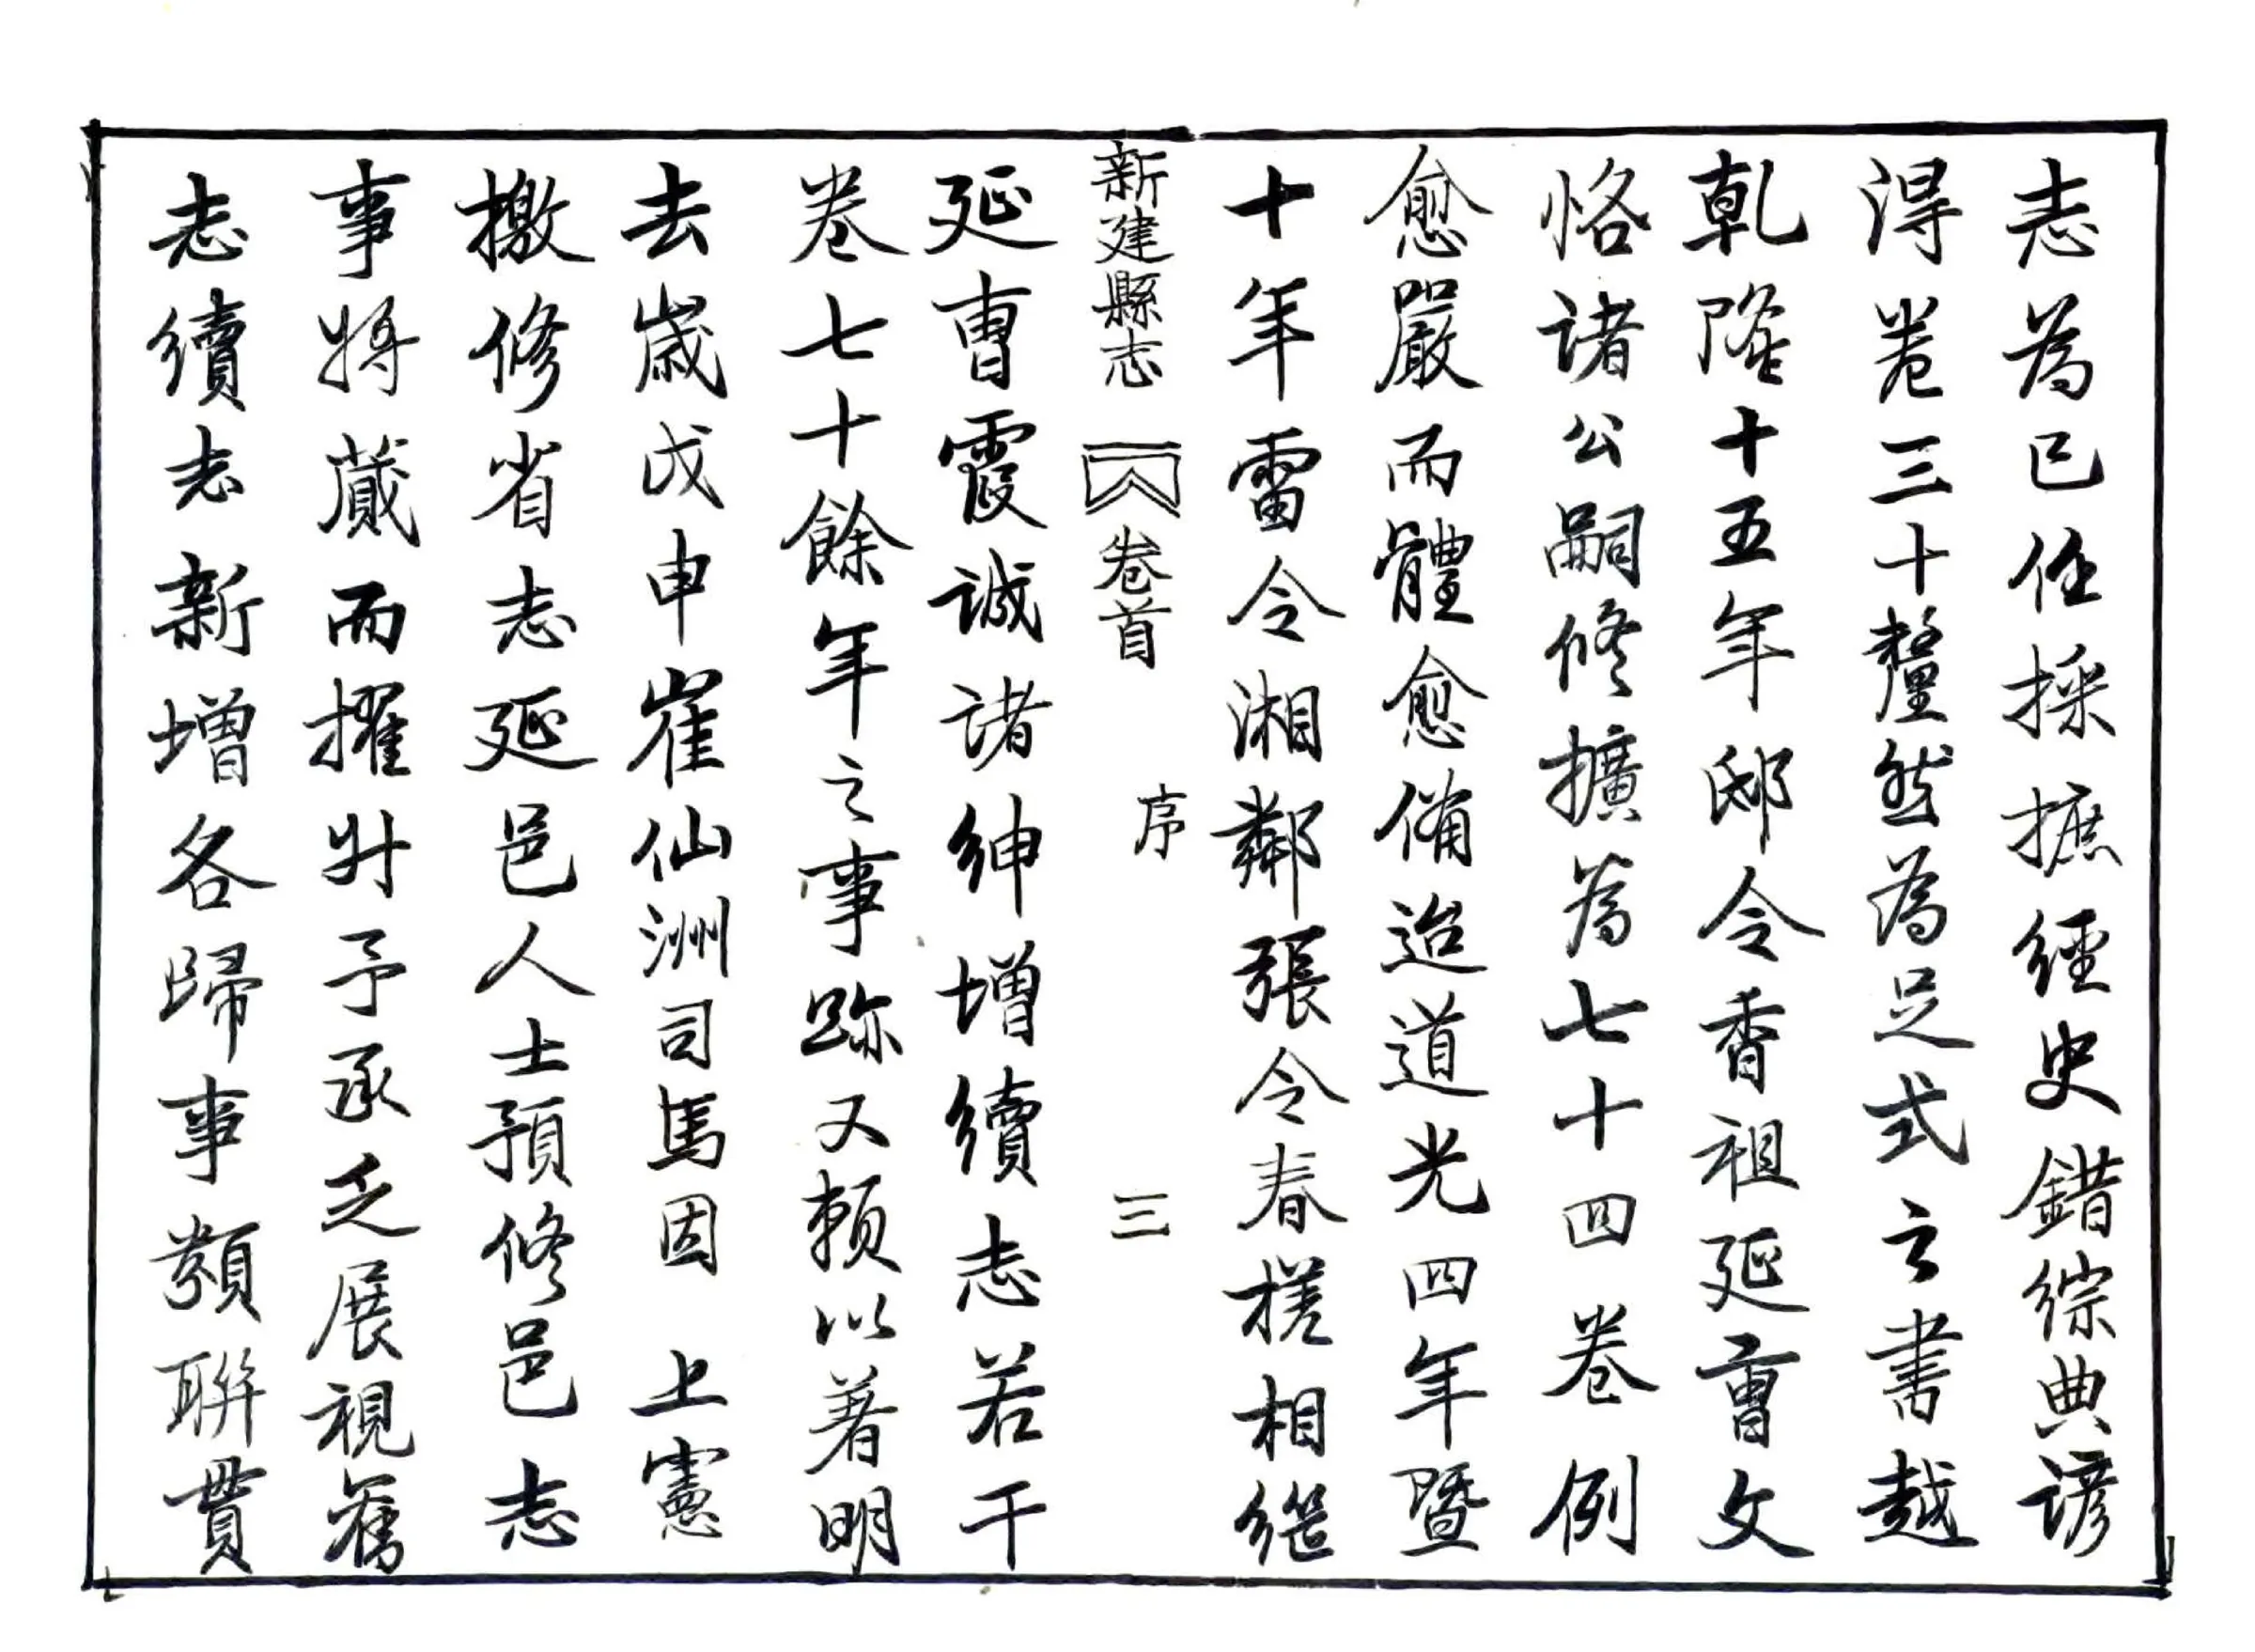 志為已任採摭經史錯綜典諺
得卷三十釐然為足式之書越
乾隆十五年邸令香祖延曹文
恪諸公嗣修擴為七十四卷例
愈嚴而體愈備迨道光四年暨
十年雷令湘鄰張令春槎相繼
新建縣志 卷首 序 三
延曹霞誠諸紳增續志若干
卷七十餘年之事跡又賴以著明
去歲戊申崔仙洲司馬因 上憲
檄修省志延邑人士預修邑志
事將蕆而擢升予承乏展視舊
志續志新增各歸事類聯貫